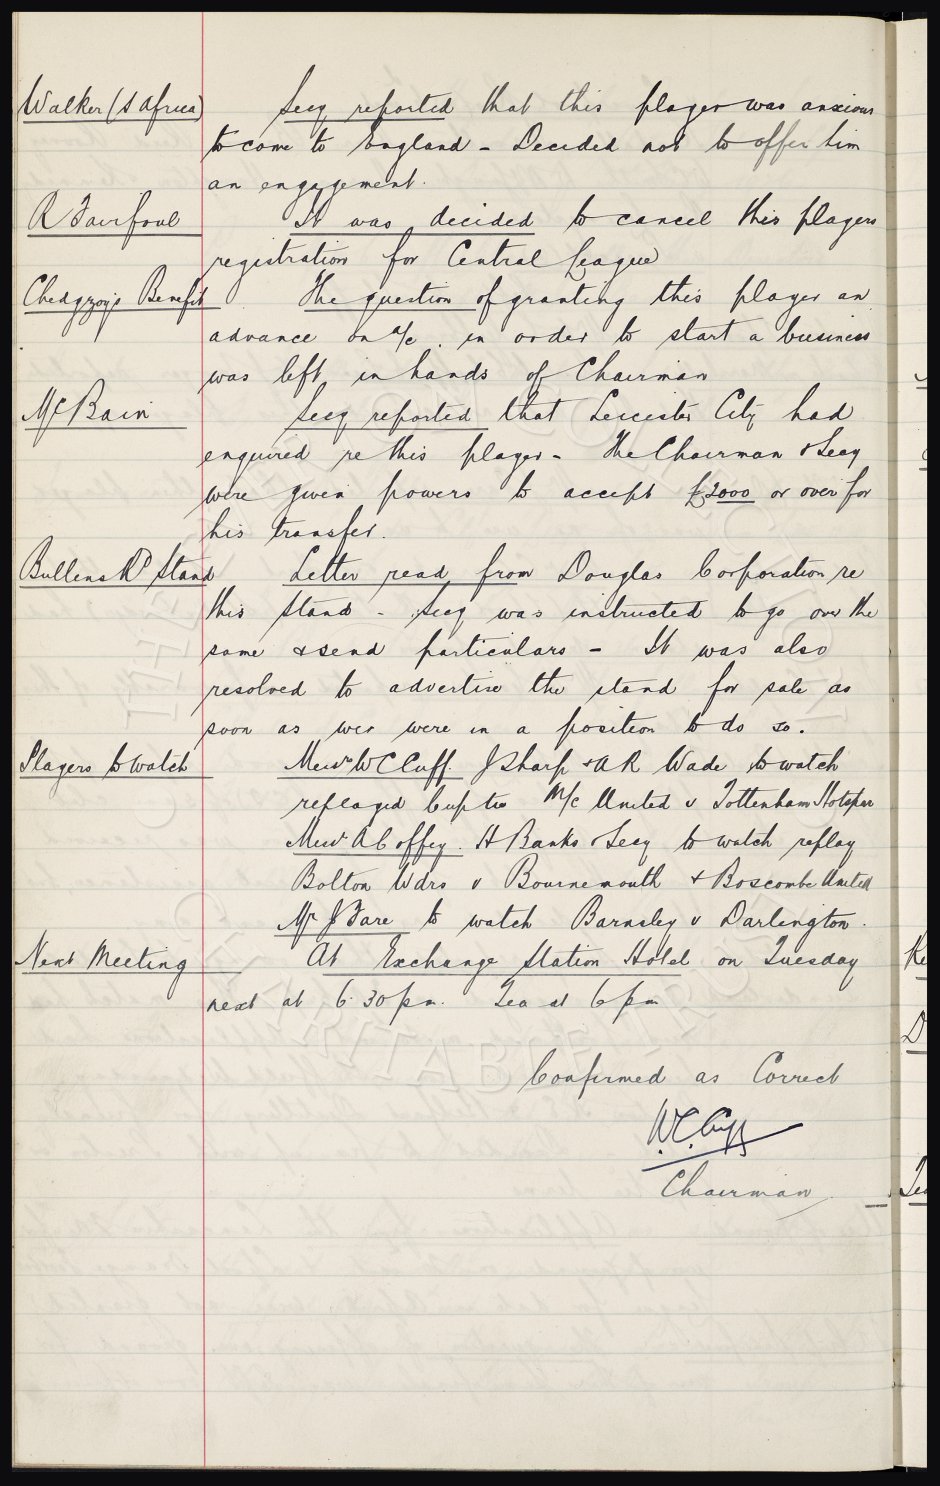 Walker (S Africa) Secy reported that this player was anxious
to come to England - Decided not to offer him
an engagement.
R Fairfoul It was decided to cancel this players
registration for Central League
Chedgzoy's Benefit The question of granting this player an
advance on a/c. in order to start a business
was left in hands of Chairman
McBain Secy reported that Leicester City had
enquired re this player - The Chairman & Secy
were given powers to accept £2000 or over for
his transfer.
Bullens Rd Stand Letter read from Douglas Corporation re
this Stand - Secy was instructed to go over the
same & send particulars - It was also
resolved to advertise the stand for sale as
soon as we were in a position to do so.
Players to watch Messrs W C Cuff. J Sharp & A R Wade to watch
replayed Cup tie M/c United v Tottenham Hotspur
Messrs A Coffey. H Banks & Secy to watch replay
Bolton Wdrs v Bournemouth & Boscombe United
Mr J Fare to watch Barnsley v Darlington.
Next Meeting At Exchange Station Hotel on Tuesday
next at 6.30 pm. Tea at 6 pm
Confirmed as Correct
W.C. Cuff
Chairman